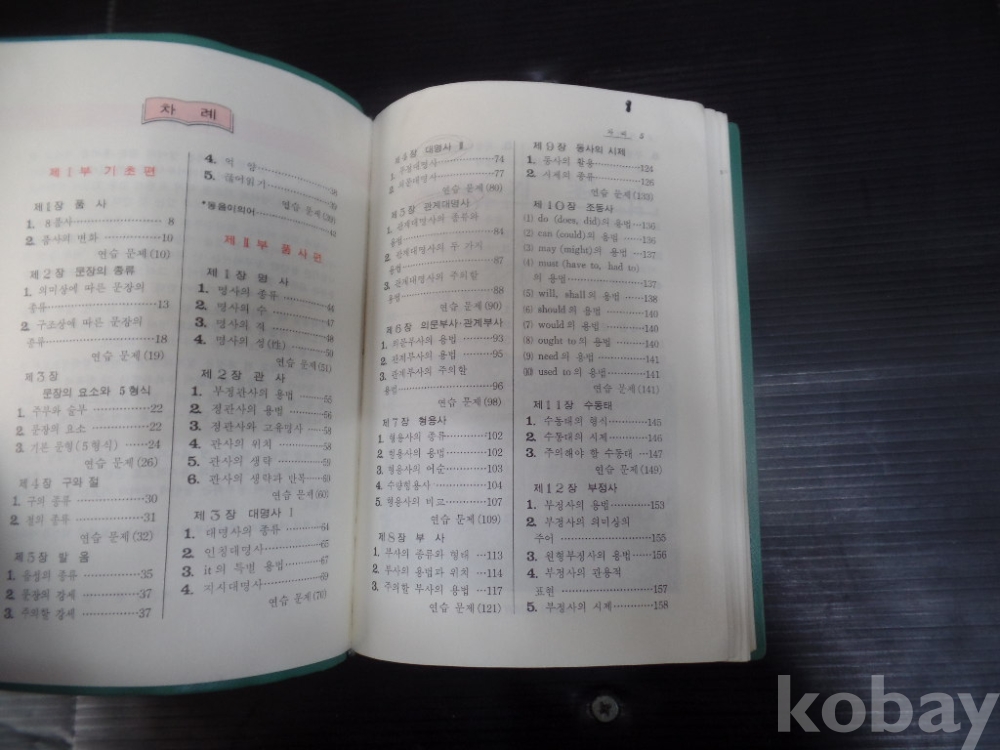 차 례
제 Ⅰ 부 기 초 편
제 1 장 품 사
1. 8품사 8
2. 품사의 변화 10
연습 문제(10)
제 2 장 문장의 종류
1. 의미상에 따른 문장의
종류 13
2. 구조상에 따른 문장의
종류 18
연습 문제(19)
제 3 장
문장의 요소와 5 형식
1. 주부와 술부 22
2. 문장의 요소 22
3. 기본 문형(5형식) 24
연습 문제(26)
제 4 장 구와 절
1. 구의 종류 30
2. 절의 종류 31
연습 문제(32)
제 5 장 발 음
1. 음성의 종류 35
2. 문장의 강세 37
3. 주의할 강세 37
4. 억 양
5. 끊어읽기 39
연습 문제(39)
*동음이의어
제 Ⅱ 부 품 사 편
제 1 장 명 사
1. 명사의 종류 44
2. 명사의 수 47
3. 명사의 격 49
4. 명사의 성(性) 50
연습 문제(51)
제 2 장 관 사
1. 부정관사의 용법 55
2. 정관사의 용법 56
3. 정관사와 고유명사 58
4. 관사의 위치 58
5. 관사의 생략 59
6. 관사의 생략과 반복 60
연습 문제(60)
제 3 장 대명사 Ⅰ
1. 대명사의 종류 64
2. 인칭대명사 65
3. it의 특별 용법 67
4. 지시대명사 69
연습 문제(70)
1
차 례 5
제 4 장 대명사 Ⅱ
1. 부정대명사 74
2. 의문대명사 77
연습 문제(80)
제 5 장 관계대명사
1. 관계대명사의 종류와
용법 84
2. 관계대명사의 두 가지
용법 87
3. 관계대명사의 주의할
용법 88
연습 문제(90)
제 6 장 의문부사·관계부사
1. 의문부사의 용법 93
2. 관계부사의 용법 95
3. 관계부사의 주의할
용법 96
연습 문제(98)
제 7 장 형용사
1. 형용사의 종류 102
2. 형용사의 용법 102
3. 형용사의 어순 103
4. 수량형용사 104
5. 형용사의 비교 107
연습 문제(109)
제 8 장 부 사
1. 부사의 종류와 형태 113
2. 부사의 용법과 위치 114
3. 주의할 부사의 용법 117
연습 문제(121)
제 9 장 동사의 시제
1. 동사의 활용 124
2. 시제의 종류 126
연습 문제(133)
제 10 장 조동사
(1) do (does, did)의 용법 136
(2) can (could)의 용법 136
(3) may (might)의 용법 137
(4) must (have to, had to)
의 용법 137
(5) will, shall의 용법 138
(6) should의 용법 140
(7) would의 용법 140
(8) ought to의 용법 140
(9) need의 용법 141
(10) used to의 용법 141
연습 문제(141)
제 11 장 수동태
1. 수동태의 형식 145
2. 수동태의 시제 146
3. 주의해야 할 수동태 147
연습 문제(149)
제 12 장 부정사
1. 부정사의 용법 153
2. 부정사의 의미상의
주어 155
3. 원형부정사의 용법 156
4. 부정사의 관용적
표현 157
5. 부정사의 시제 158
kobay